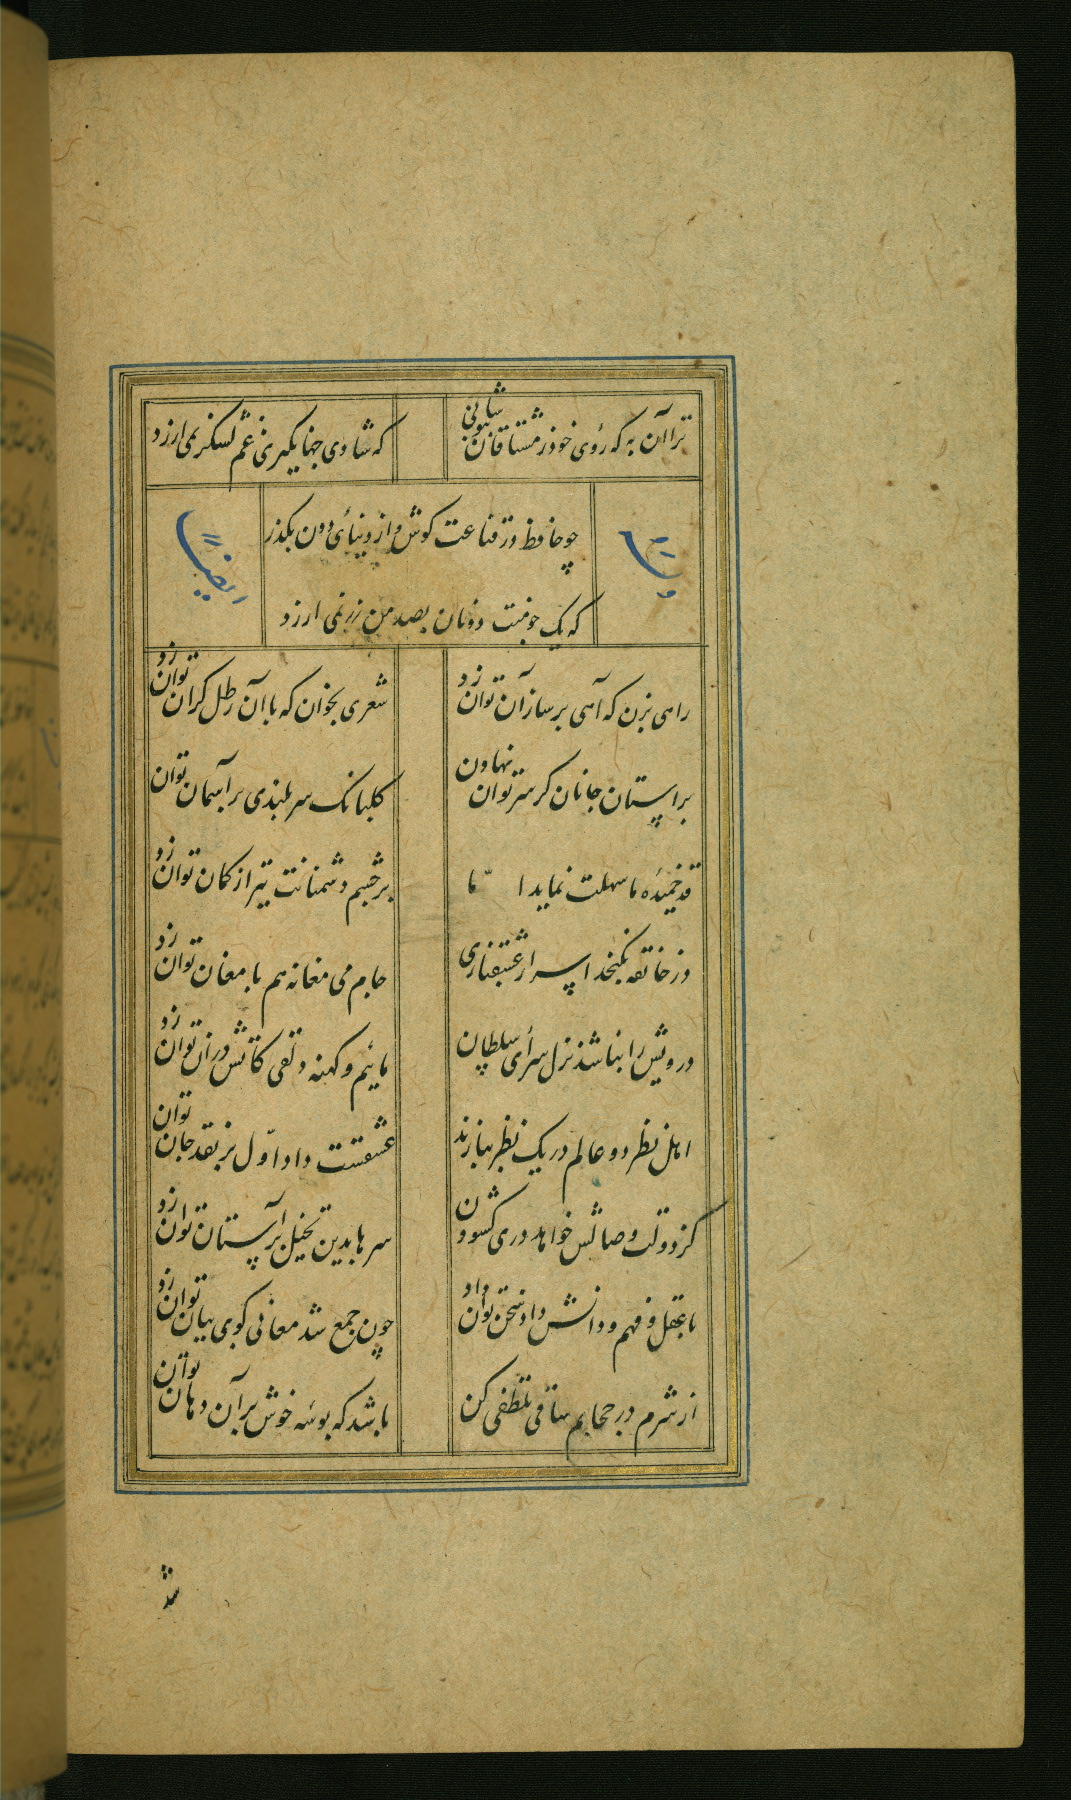 ترا آن به که روی خود ز مشتاقان بپوشانی
که شادی جهانگیری غم لشکر نمی ارزد
چو حافظ در قناعت کوش و از دنیای دون بگذر
وله
ایضاً
که یک جو منت دونان بصد من زر نمی ارزد
راهی بزن که آهی بر ساز آن توان زد
شعری بخوان که با آن رطل گران توان زد
بر آستان جانان گر سر توان نهادن
گلبانک سر بلندی بر آسمان توان
قد خمیده ما سهلت نماید اما
بر چشم دشمنانت تیر از کمان توان زد
در خانقه نگنجد اسرار عشقبازی
جام می مغانه هم با مغان توان زد
درویش را نباشد نزل سرای سلطان
مائیم و کهنه دلقی کاتش در آن توان زد
اهل نظر دو عالم در یک نظر ببازند
عشقست داو اول بر نقد جان توان
گر دولت وصالش خواهد دری گشودن
سرها بدین تخیل بر آستان توان زد
با عقل و فهم و دانش داد سخن توان داد
چون جمع شد معانی گوی بیان توان زد
از شرم در حجابم ساقی تلطفی کن
باشد که بوسه خوش بر آن دهان توان
شد